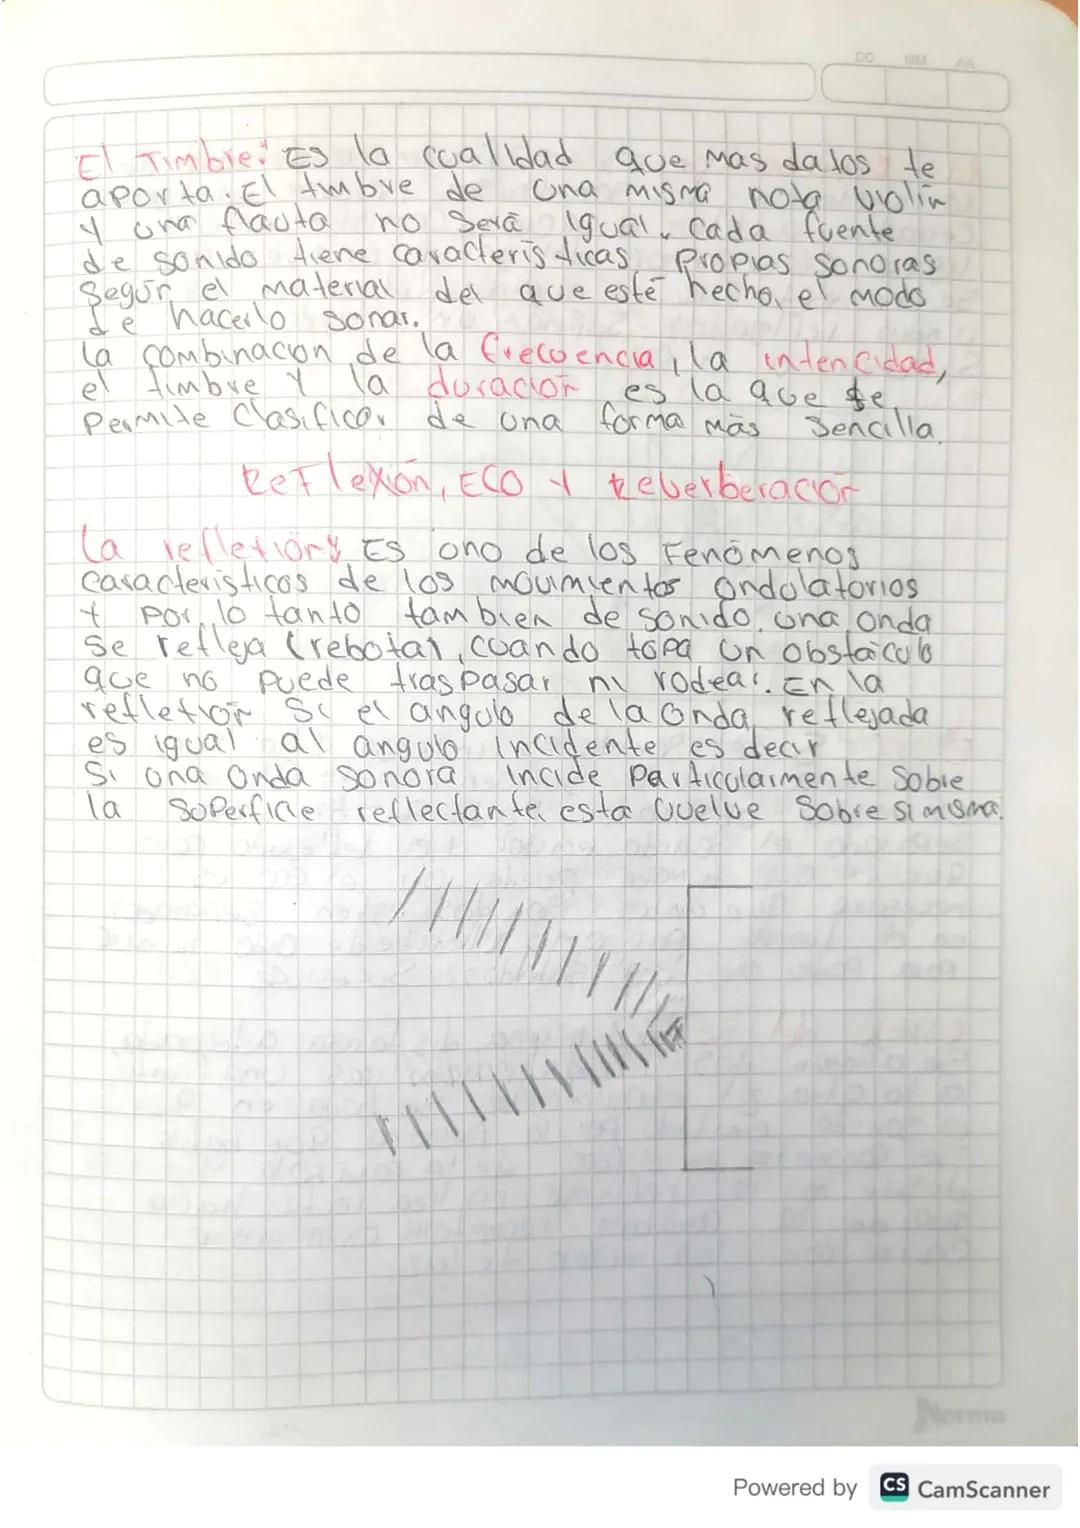 DD MM AA
El Timbre: Es la cualidad que mas datos te
aporta. El timbre de una misma nota violín
y una flauta no será igual, cada fuente
de sonido tiene caracteristicas propias sonoras
según el material del que esté hecho, el modo
de hacerlo sonar.
La combinacion de la frecuencia, la intencidad,
el timbre y la duración es la que te
permite clasificar de una forma más sencilla.
Reflexión, ECO y Reverberación
La reflexión: Es uno de los Fenómenos
caracteristicos de los movimientos ondulatorios
y por lo tanto tambien de sonido. una onda
se refleja (rebota), cuando topa un obstáculo
que no puede traspasar ni rodear. En la
reflexión si el angulo de la onda reflejada
es igual al angulo incidente es decir
Si una onda sonora incide particularmente sobre
la superficie reflectante, esta vuelve sobre si misma.
Norma
Powered by CS CamScanner